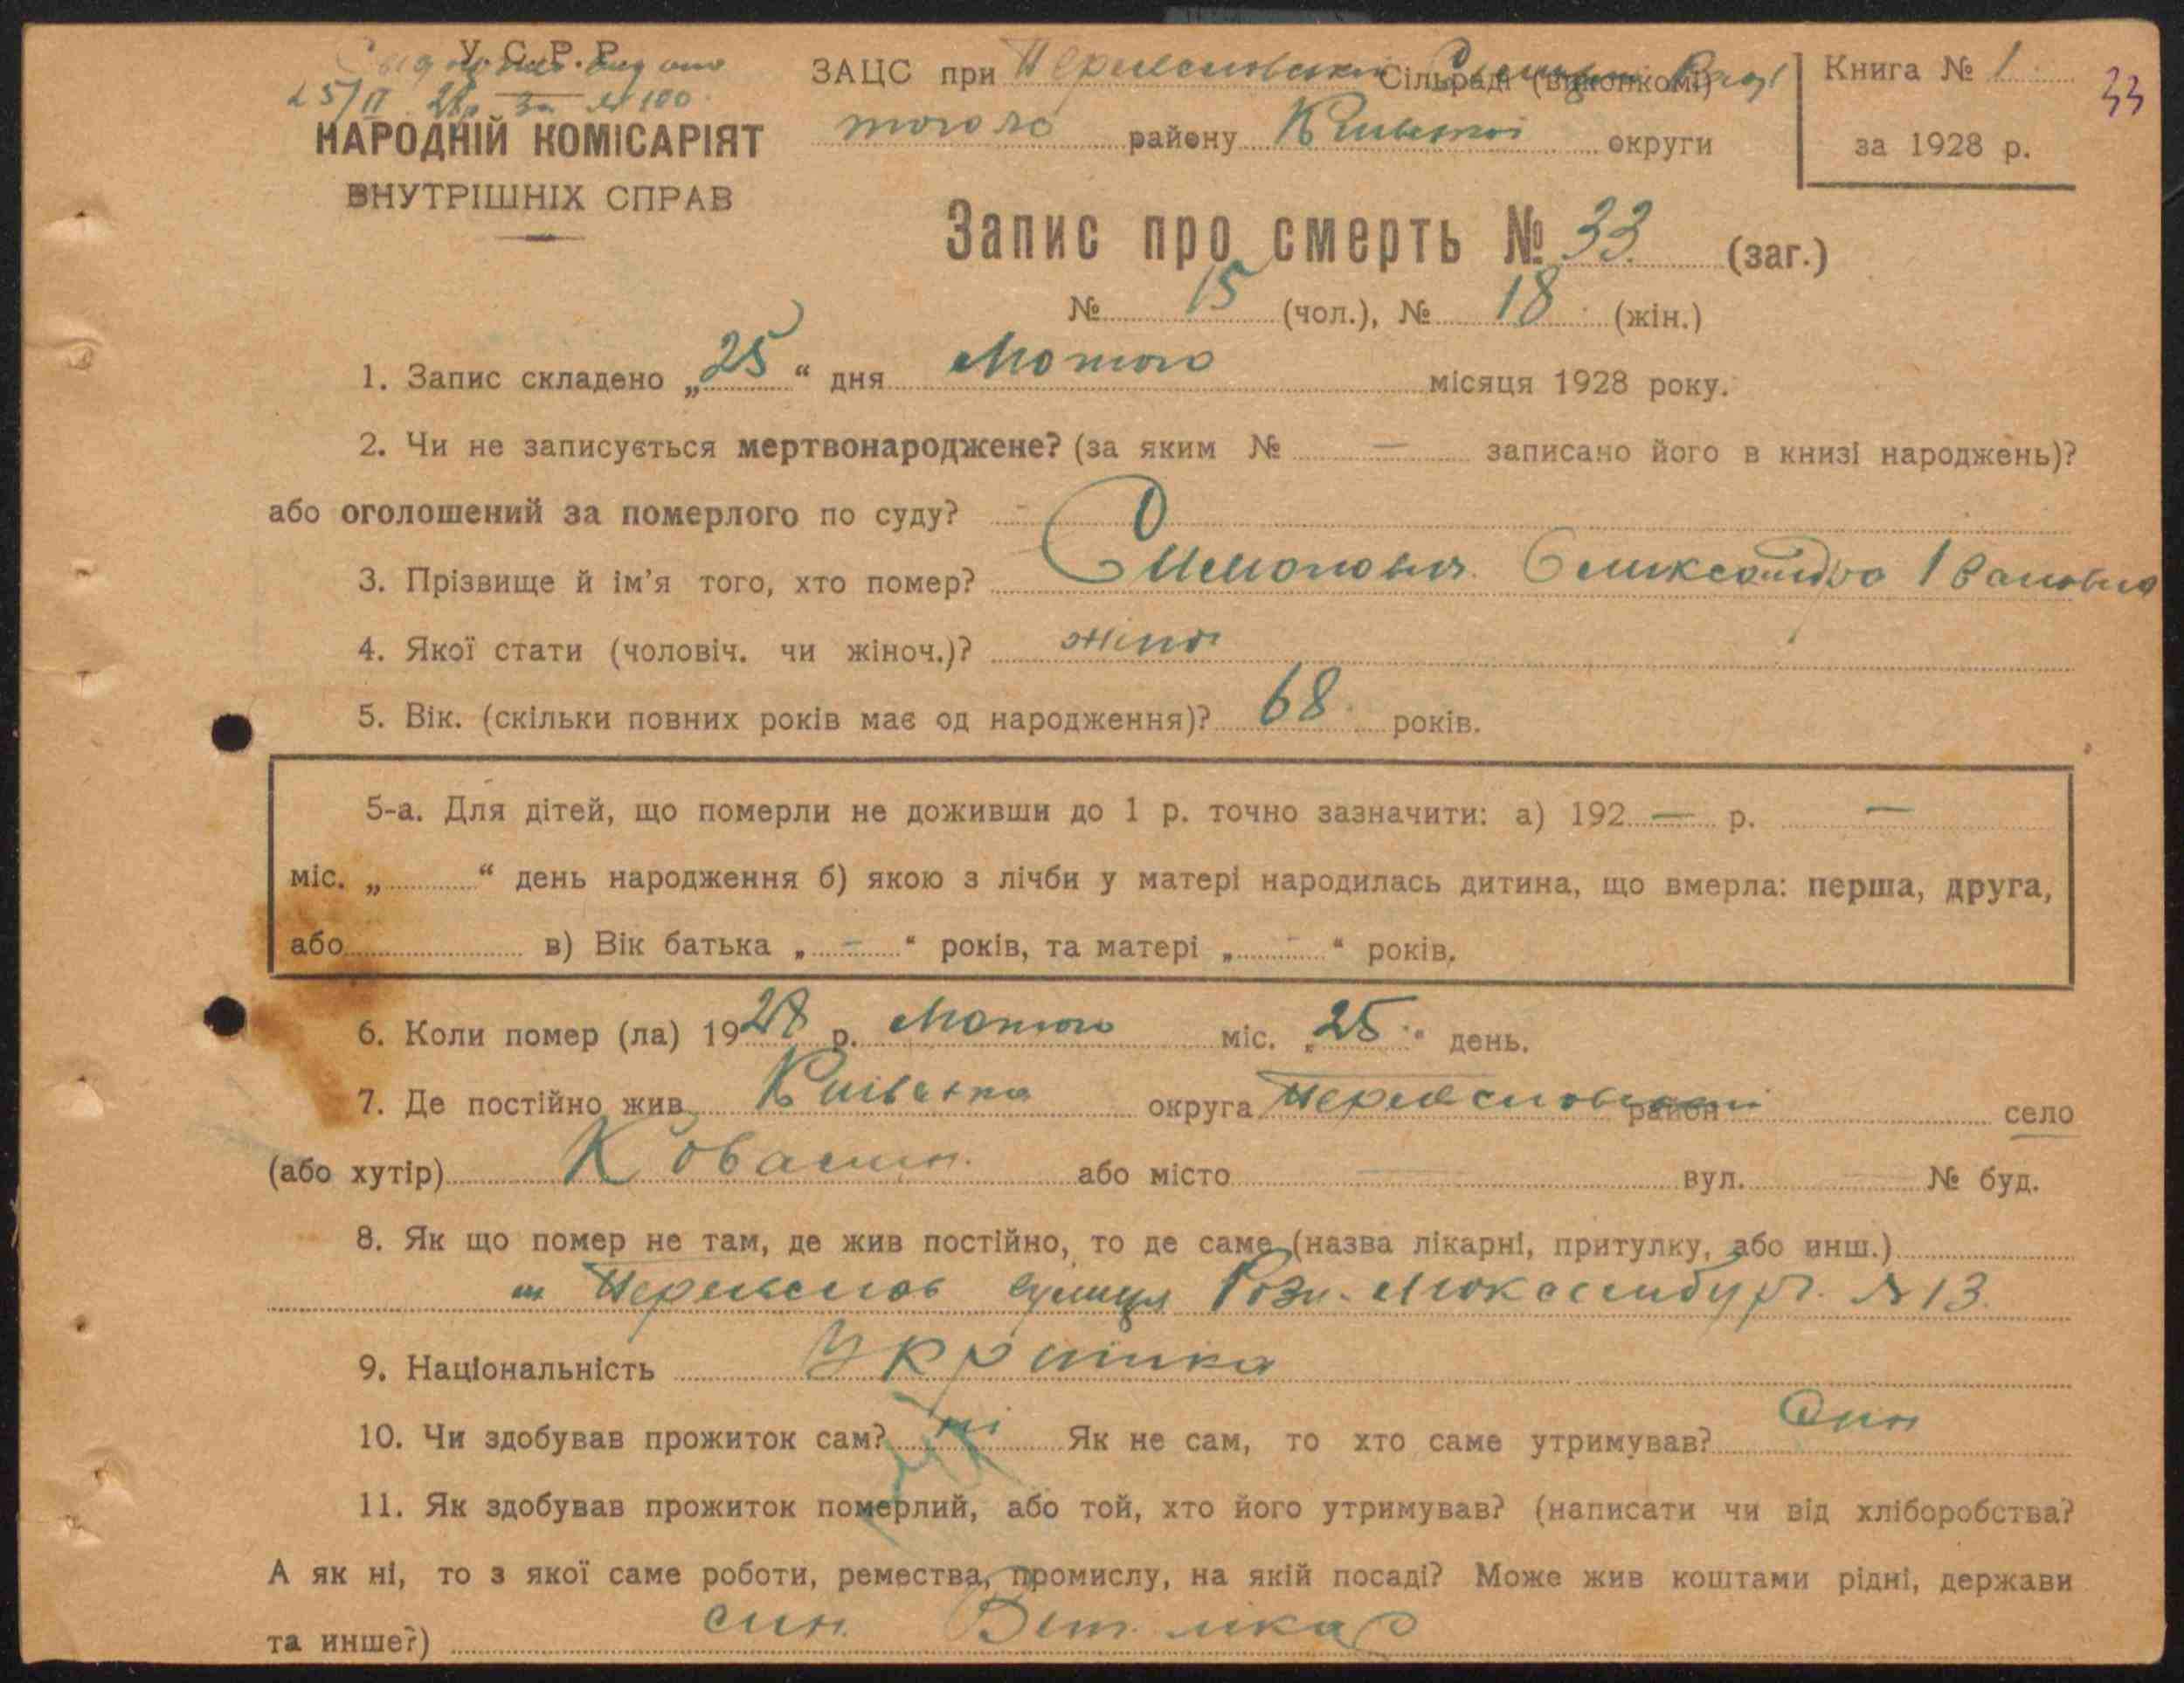 У.С.Р.Р.
25/II 28р за № 100
НАРОДНІЙ КОМІСАРІЯТ
ВНУТРІШНІХ СПРАВ
ЗАЦС при Переяславські Сільраді (виконкомі)
того ж району Київської округи
Книга № 1
за 1928 р.
33
Запис про смерть № 33 (заг.)
№ 15 (чол.), № 18 (жін.)
1. Запис складено „25“ дня Лютого місяця 1928 року.
2. Чи не записується мертвонароджене? (за яким № — записано його в книзі народжень)?
або оголошений за померлого по суду? —
3. Прізвище й ім'я того, хто помер? Олександра Івановна
4. Якої стати (чоловіч. чи жіноч.)? жіноч
5. Вік. (скільки повних років має од народження)? 68 років.
5-а. Для дітей, що померли не доживши до 1 р. точно зазначити: а) 192 — р. —
міс. „ “ день народження б) якою з лічби у матері народилась дитина, що вмерла: перша, друга,
або в) Вік батька „ — “ років, та матері „ — “ років.
6. Коли помер (ла) 1928 р. Лютого міс. „25“ день.
7. Де постійно жив Київська округа Переяславський район село
(або хутір) Ковалин або місто — вул. — № буд.
8. Як що помер не там, де жив постійно, то де саме (назва лікарні, притулку, або инш.)
м Переяслов вулиця Рози-Люксембург № 13.
9. Національність Українка
10. Чи здобував прожиток сам? ні Як не сам, то хто саме утримував? Син
11. Як здобував прожиток померлий, або той, хто його утримував? (написати чи від хліборобства?
А як ні, то з якої саме роботи, ремества, промислу, на якій посаді? Може жив коштами рідні, держави
та инше?) син Вет. лікар